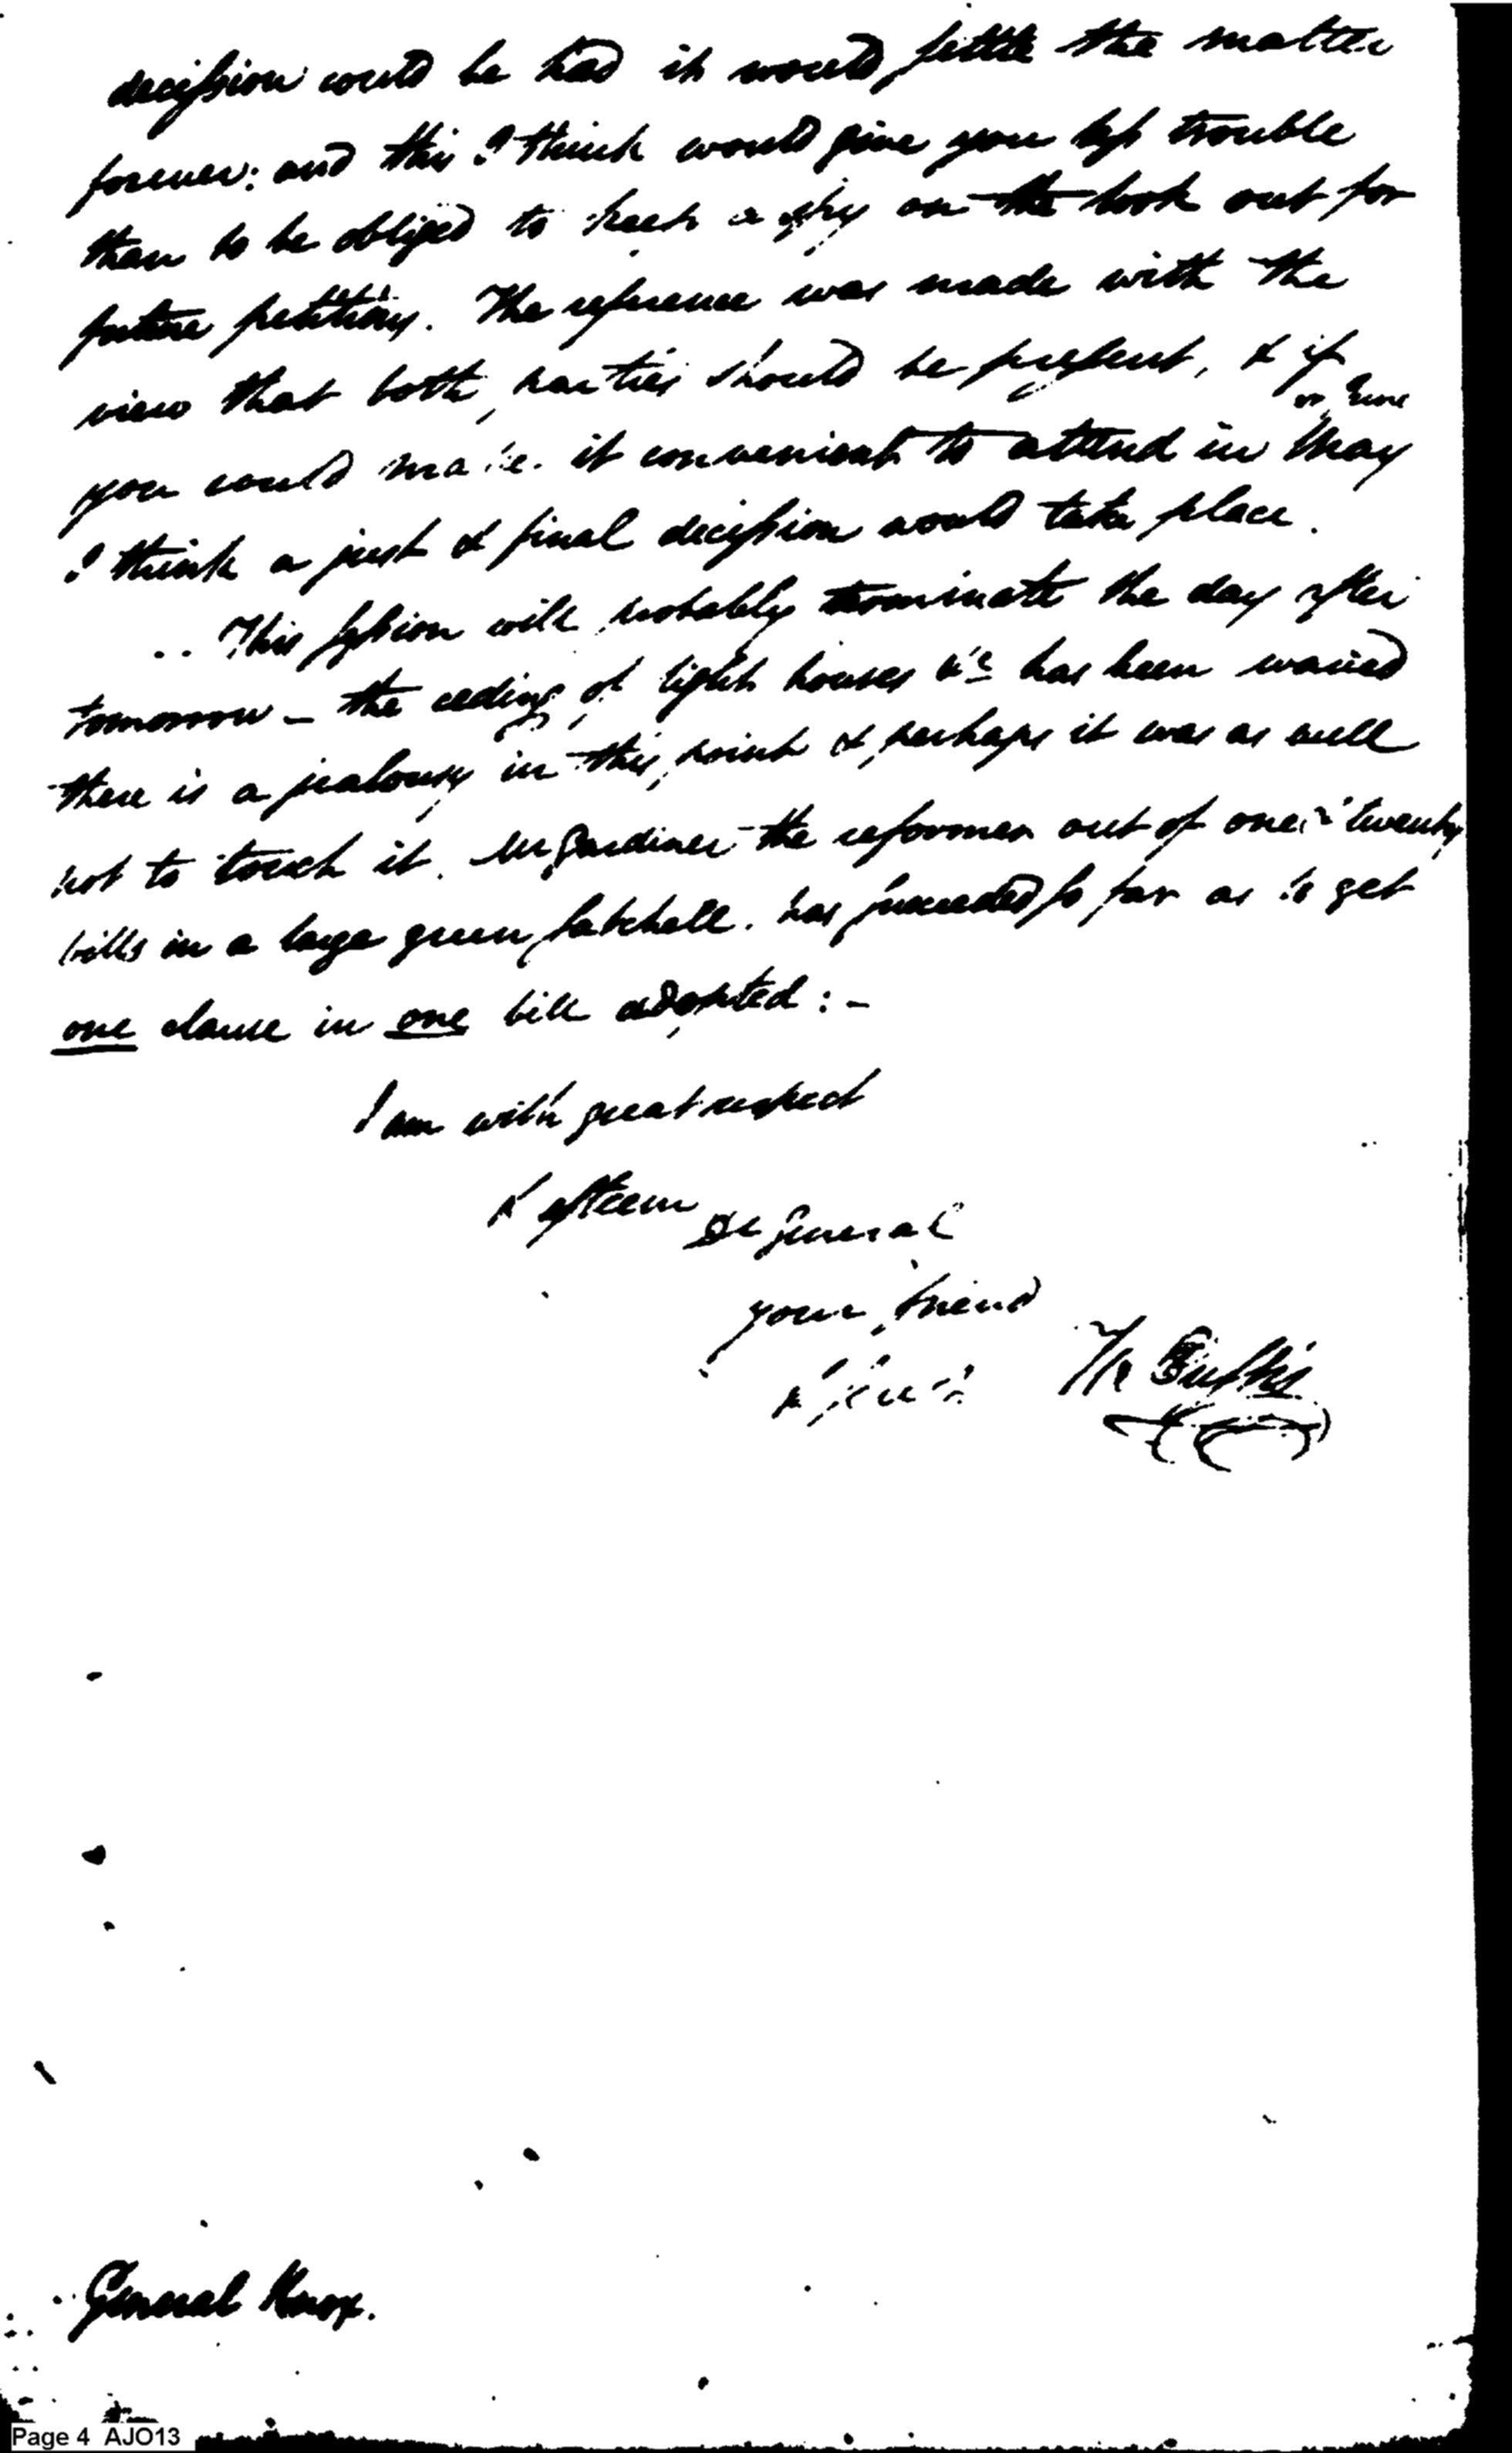 decission could be had it would settle the matter
forever: and this I think would give you less trouble
than to be obliged to keep a spy on the look out for
future petitions. The reference was made with the
view that both parties should be present, & if
or June
you could make it convenient to attend in May
I think a just & final decission would take place.
This session will probably terminate the day after
tomorrow – the ceding of light houses &c has been waived
there is a jealousy in this point & perhaps it was as well
not to touch it. Mr Gardiner the reformer out of one & twenty
bills in a large green satchell. has succeeded so far as to get
one clause in one bill adopted : –
I am with great respect
& esteem Dr General
your friend
&
General Knox.
Page 4 AJO13